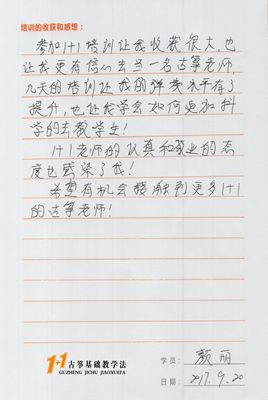 培训的收获和感想：
参加1+1培训让我收获很大，也
让我更有信心去当一名古筝老师，
几天的培训让我的弹奏水平有了
提升，也让我学会如何更加科
学的去教学生！
1+1老师的认真和敬业的态
度也感染了我！
希望有机会接触到更多1+1
的古筝老师！
1+1古筝基础教学法
GUZHENG JICHU JIAOXUEFA
学员：颜丽
日期：2017.9.20